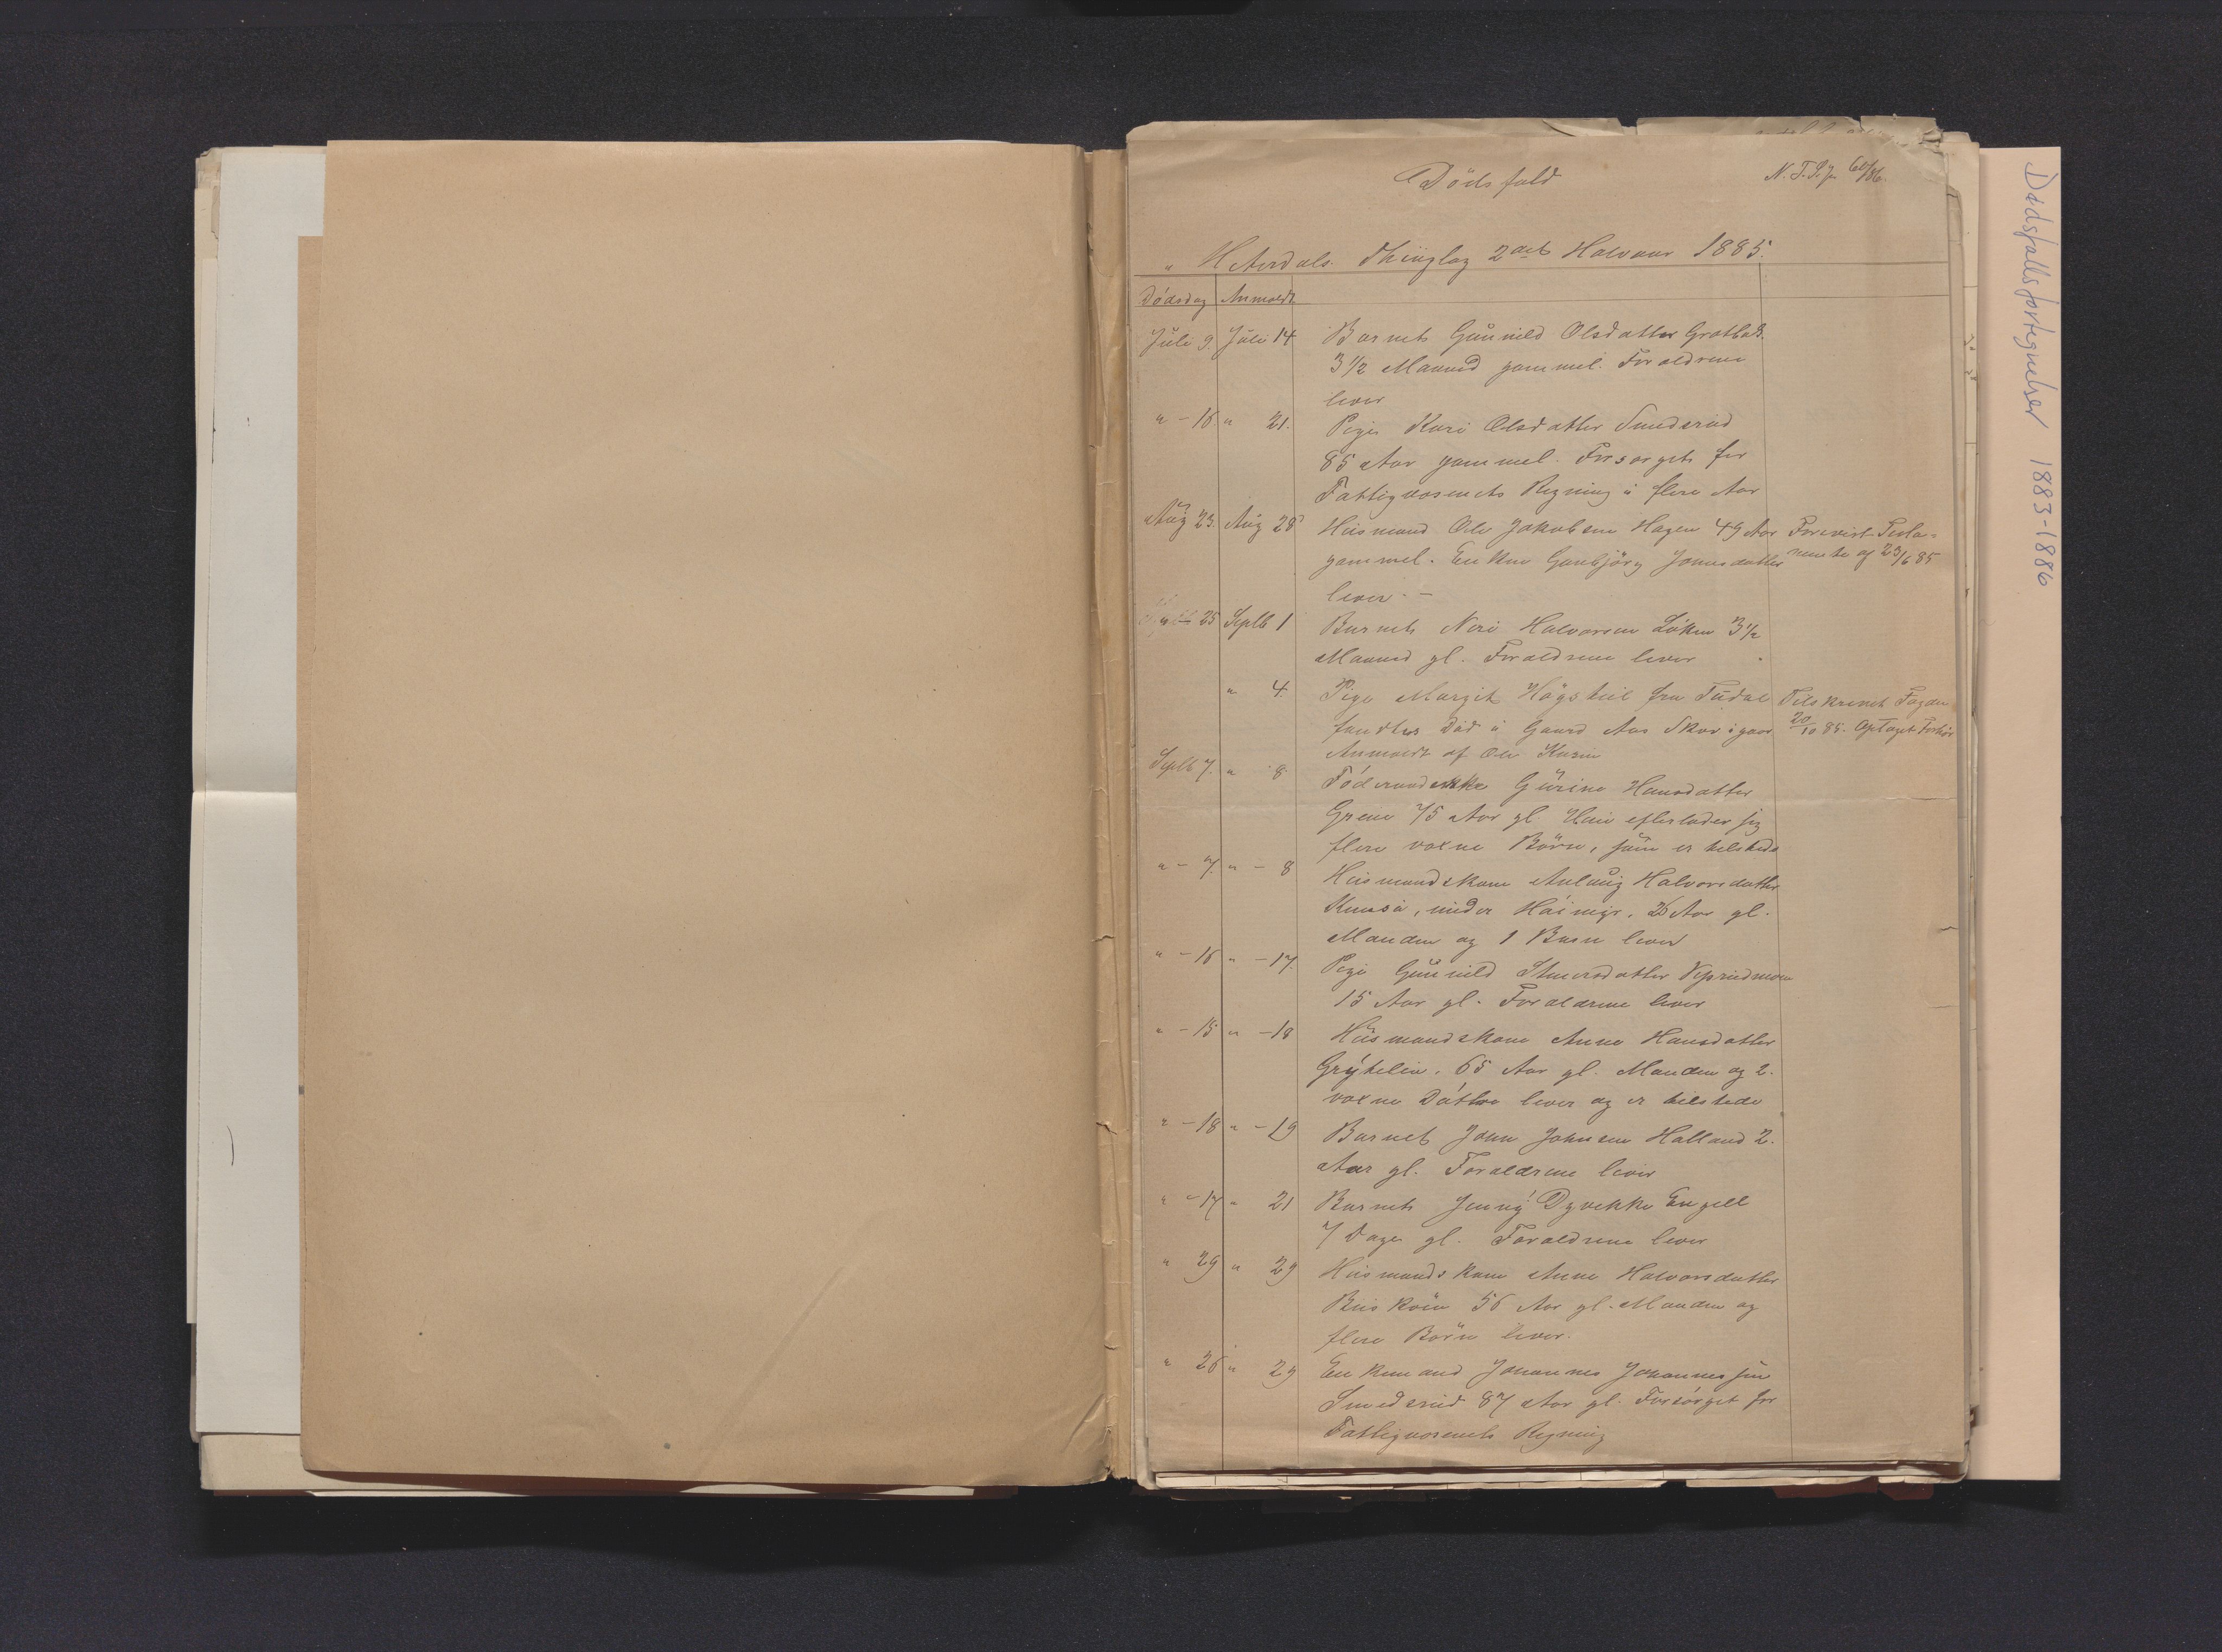 Dödsfald
N. T. P. Jr 60/86.
" Hiterdals. Thinglag 2det Halvaar 1885.
Dödsdag Anmeldt
Juli 9. Juli 14 Barnet Gunnild Olsdatter Grotbæk.
3 1/2 Maaned gammel. Foraldrene
lever
" - 16 " 21. Pige Kari Olsdatter Smedsrud
85 Aar gammel. Forsörget for
Fattigvæsenets Regning i flere Aar
Aug 23. Aug 28 Husmand Ole Jakobsen Hagen 49 Aar Forevist Testa-
gammel. Enken Gunbjörg Jonesdatter mente af 23/6 85
lever. -
25 Septb 1 Barnet Neri Halvorsen Löken 3 1/2
Maaned gl. Foraldrene lever
" 4. Pige Margit Högstul fra Tudal Tilskrevet Fogden
fandtes död i Gaard Aas Skov igaar 20/10 85. Optaget Forhör
Anmeldt af Ole
Septb 7. " 8. Föderaadenke Gurine Hansdatter
Grene 75 Aar gl Hun efterlader sig
flere voxne Börn, som er tilstede
" - 7. " - 8 Husmandskone Aslaug Halvorsdatter
under 26 Aar gl.
Manden og 1 Barn lever
" - 16 " - 17. Pige Gunnild
15 Aar gl. Foraldrene lever
" - 15 " - 18 Husmandskone Anne Hansdatter
Grytelien. 65 Aar gl. Manden og 2.
voxne Döttre lever og er tilstede
" - 18 " - 19 Barnet John Johnsen Halland 2.
Aar gl. Foraldrene lever
" - 17 " 21 Barnet Jenny Dyvekke Engell
7 Dage gl. Foraldrene lever
" 29 " 29 Husmandskone Anne Halvorsdatter
56 Aar gl. Manden og
flere Börn lever.
" 26 " 29 Enkemand Johannes Johannessen
Smedsrud 87 Aar gl. Forsörget for
Fattigvæsenets Regning
Dødsfallsfortegnelser 1883-1886